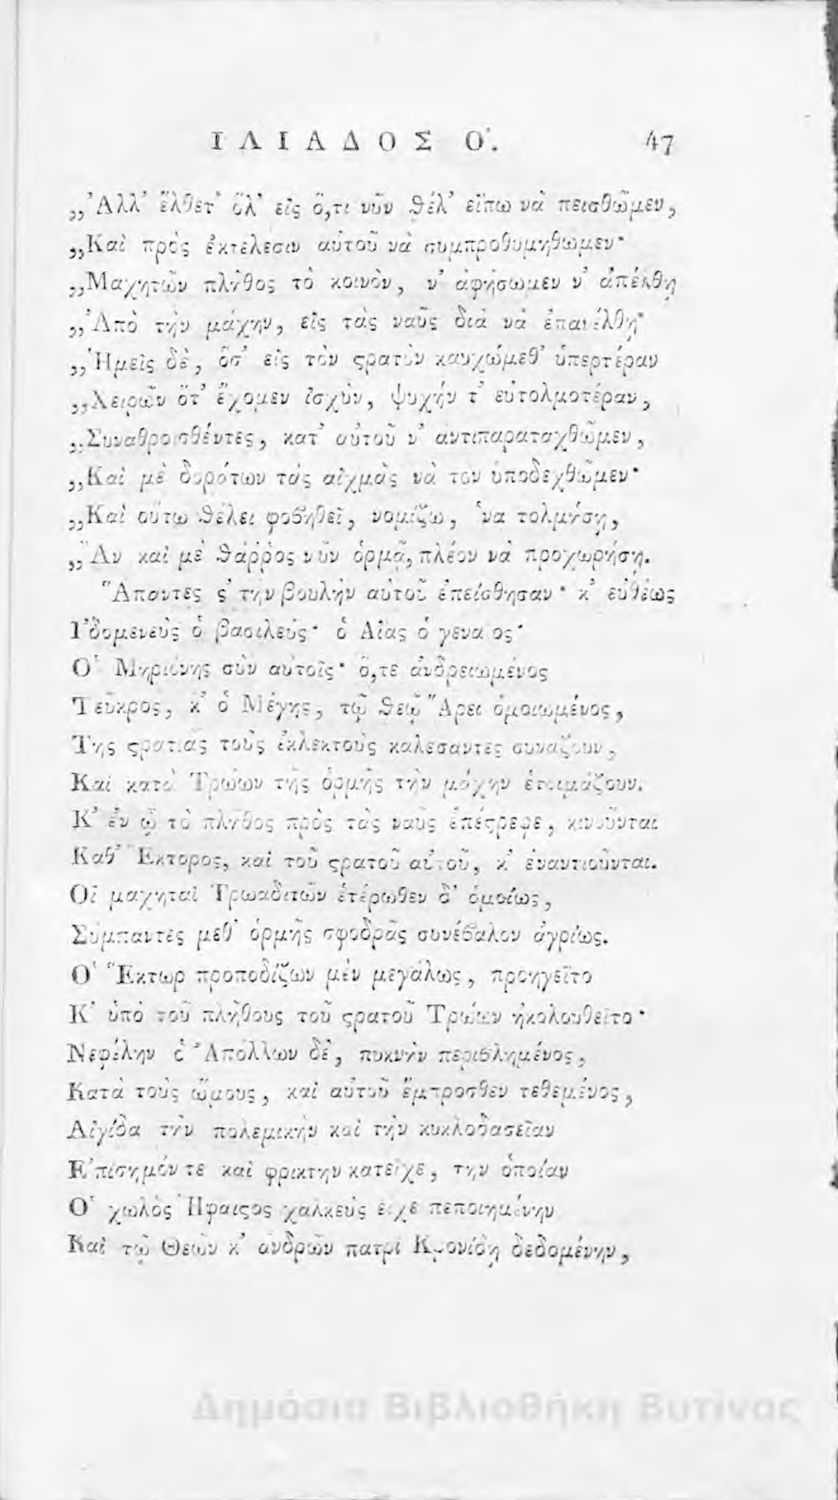 ΙΛΙΑΔΟΣ Ο'. 47
„Ἀλλ' ἔλθετ' ὅλ' εἰς ὅ,τι νῦν θέλ' εἴπω νὰ πεισθῶμεν,
„Καὶ πρὸς ἐκτέλεσιν αὐτοῦ νὰ συμπροθυμηθῶμεν·
„Μαχητῶν πλῆθος τὸ κοινὸν, ν' ἀφήσωμεν ν' ἀπέλθῃ
„Ἀπὸ τὴν μάχην, εἰς τὰς ναῦς διὰ νὰ ἐπανέλθῃ·
„Ἡμεῖς δὲ, ὅσ' εἰς τὸν ϛρατὸν καυχώμεθ' ὑπερτέραν
„Χειρῶν ὅτ' ἔχομεν ἰσχὺν, ψυχήν τ' εὐτολμοτέραν,
„Συναθροισθέντες, κατ' αὐτοῦ ν' ἀντιπαραταχθῶμεν,
„Καὶ μὲ δοράτων τὰς αἰχμὰς νὰ τὸν ὑποδεχθῶμεν·
„Καὶ οὕτω θέλει φοβηθεῖ, νομίζω, 'να τολμήσῃ,
„Ἂν καὶ μὲ θάῤῥος νῦν ὁρμᾷ, πλέον νὰ προχωρήσῃ.
Ἅπαντες ϛ' τὴν βουλὴν αὐτοῦ ἐπείσθησαν· κ' εὐθέως
Ἰδομενεὺς ὁ βασιλεύς· ὁ Αἴας ὁ γενναῖος·
Ὁ Μηριόνης σὺν αὐτοῖς· ὅ,τε ἀνδρειωμένος
Τεῦκρος, κ' ὁ Μέγης, τῷ θεῷ Ἄρει ὁμοιωμένος,
Τῆς ϛρατιᾶς τοὺς ἐκλεκτοὺς καλέσαντες συνάζουν,
Καὶ κατὰ Τρώων τῆς ὁρμῆς τὴν μάχην ἑτοιμάζουν.
Κ' ἐν ᾧ τὸ πλῆθος πρὸς τὰς ναῦς ἐπέϛρεφε, κινοῦνται
Καθ' Ἕκτορος, καὶ τοῦ ϛρατοῦ αὐτοῦ, κ' ἐναντιοῦνται.
Οἱ μαχηταὶ Τρωαδιτῶν ἑτέρωθεν δ' ὁμοίως,
Σύμπαντες μεθ' ὁρμῆς σφοδρᾶς συνέβαλον ἀγρίως.
Ὁ Ἕκτωρ προποδίζων μὲν μεγάλως, προηγεῖτο
Κ' ὑπὸ τοῦ πλήθους τοῦ ϛρατοῦ Τρώων ἠκολουθεῖτο·
Νεφέλην ὁ Ἀπόλλων δὲ, πυκνὴν περιβλημένος,
Κατὰ τοὺς ὤμους, καὶ αὐτοῦ ἔμπροσθεν τεθειμένος,
Αἰγίδα τὴν πολεμικὴν καὶ τὴν κυκλοδασεῖαν
Ἐπίσημόν τε καὶ φρικτὴν κατεῖχε, τὴν ὁποίαν
Ὁ χωλὸς Ἥφαιϛος χαλκεὺς εἶχε πεποιημένην
Καὶ τῷ Θεῶν κ' ἀνδρῶν πατρὶ Κρονίδῃ δεδομένην,
Δημόσια Βιβλιοθήκη Βυτίνας